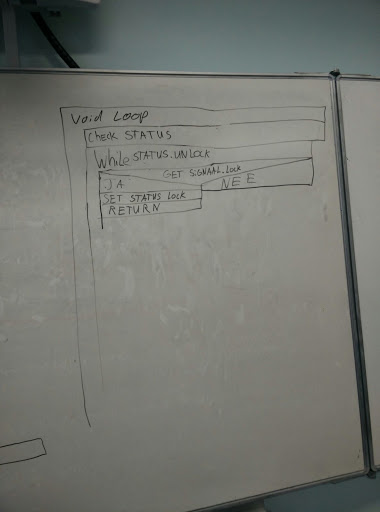 Void Loop
Check STATUS
While STATUS.UNLOCK
GET SIGNAAL.Lock
JA
NEE
SET STATUS Lock
RETURN